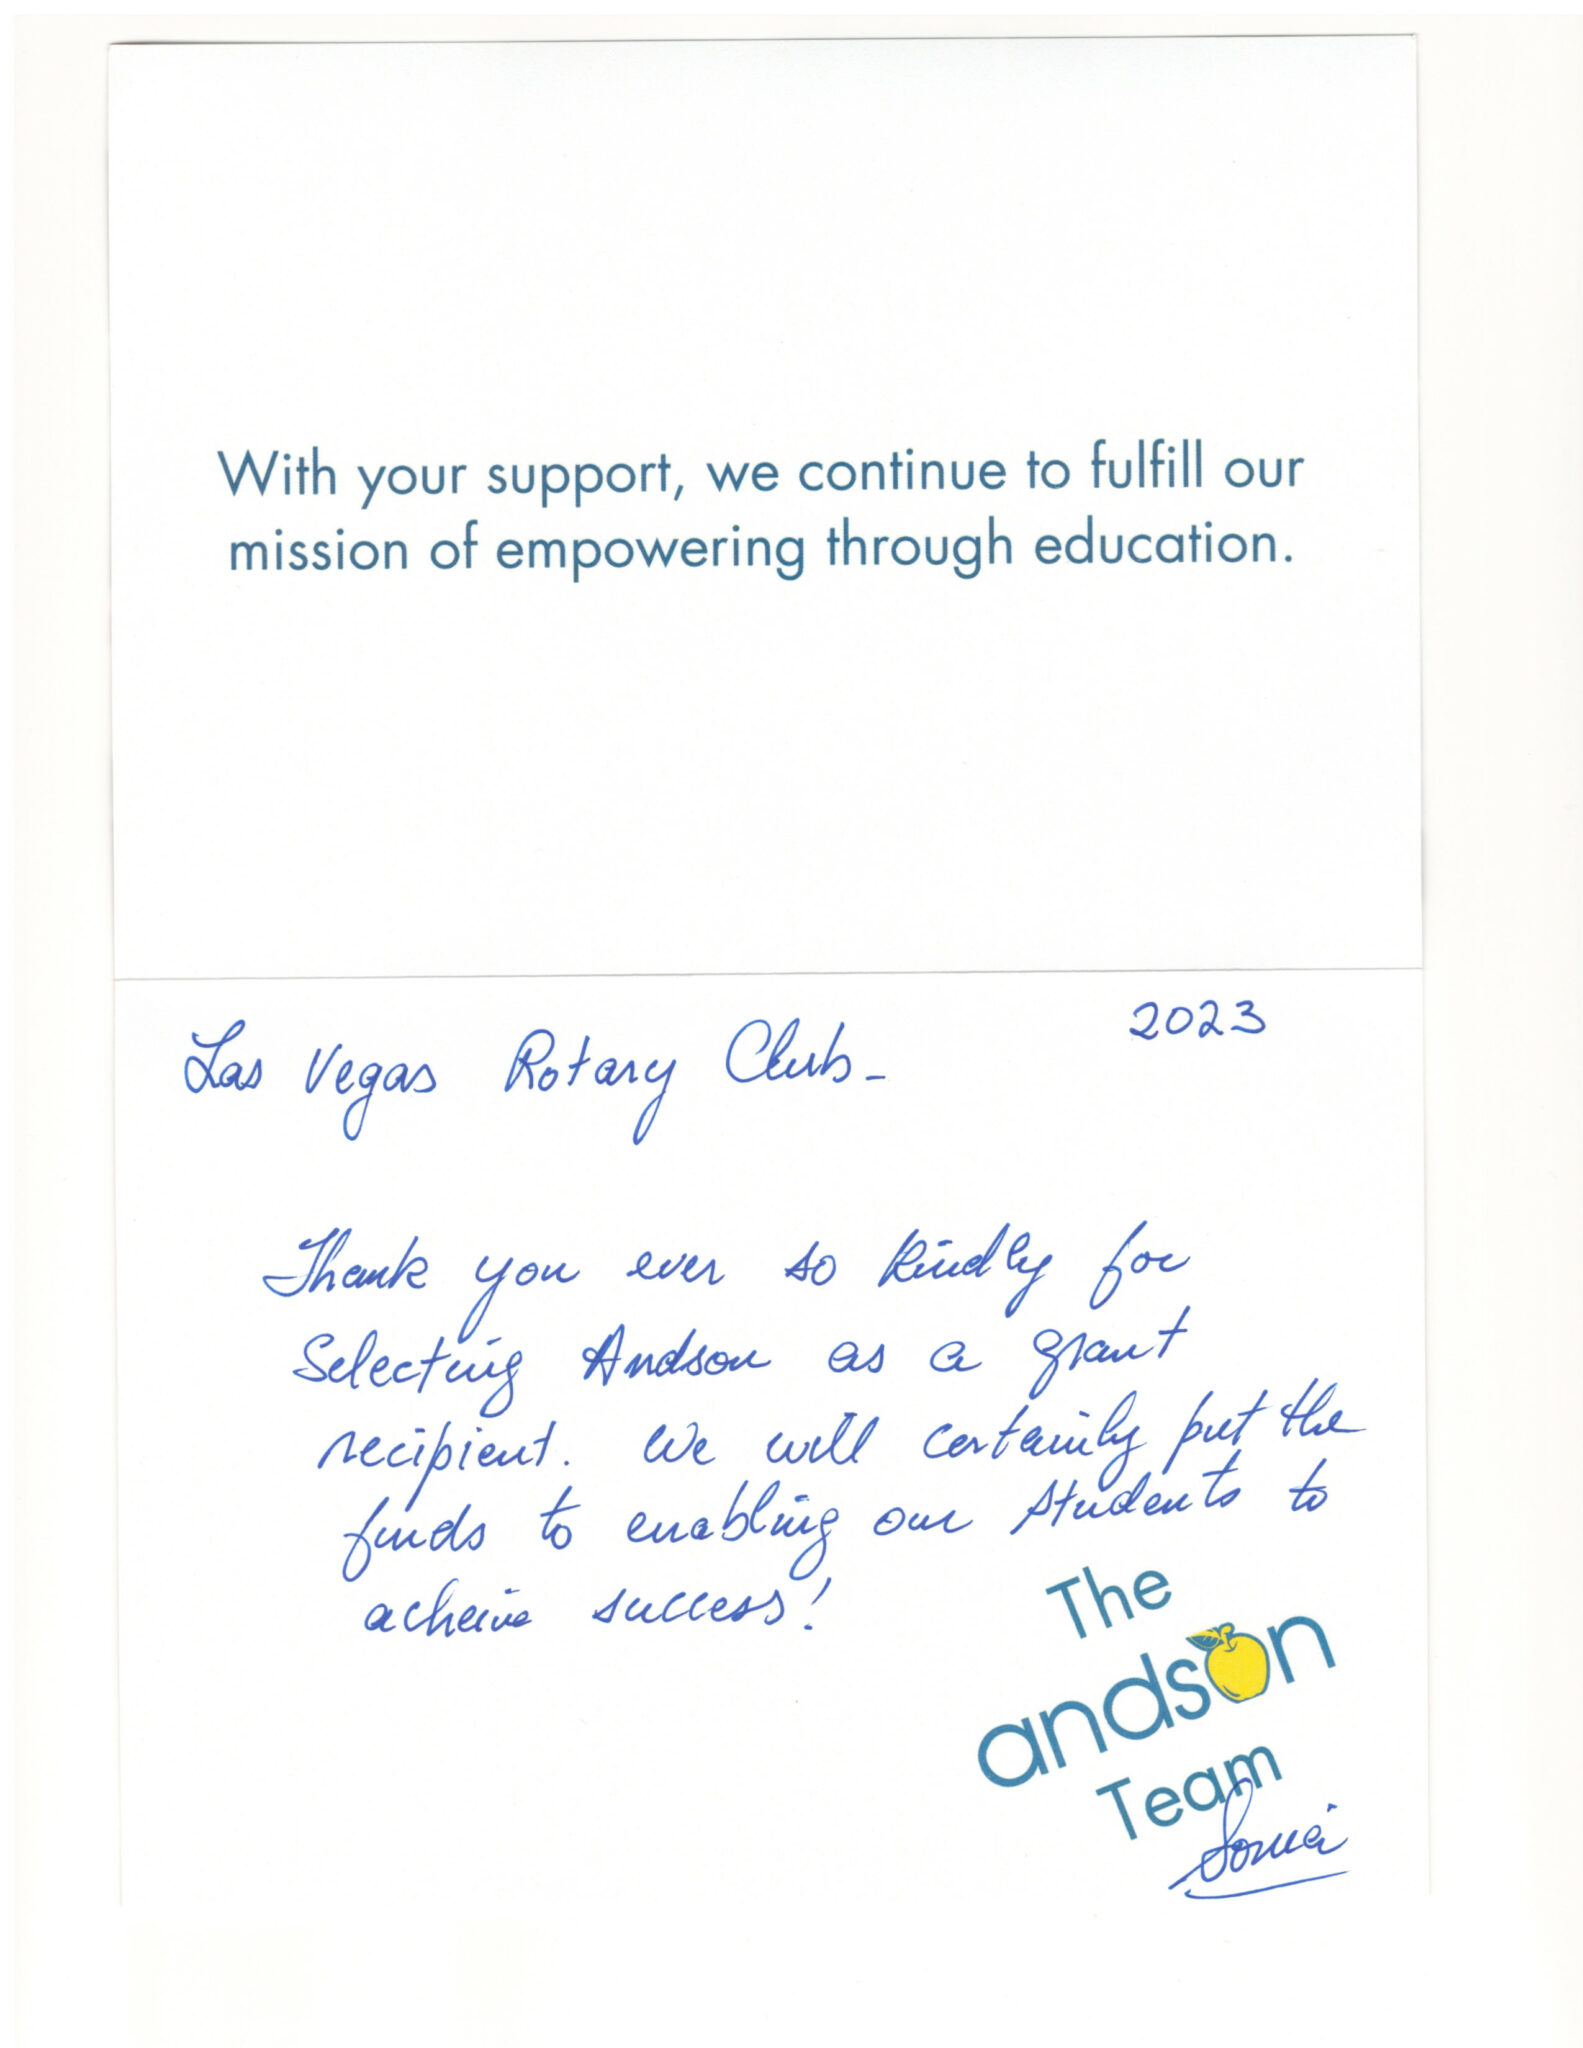 With your support, we continue to fulfill our
mission of empowering through education.
2023
Las Vegas Rotary Club-
Thank you ever so kindly for
Selecting Andson as a grant
recipient. We will certainly put the
funds to enabling our students to
acheive success!
The
andson
Team
Sonia